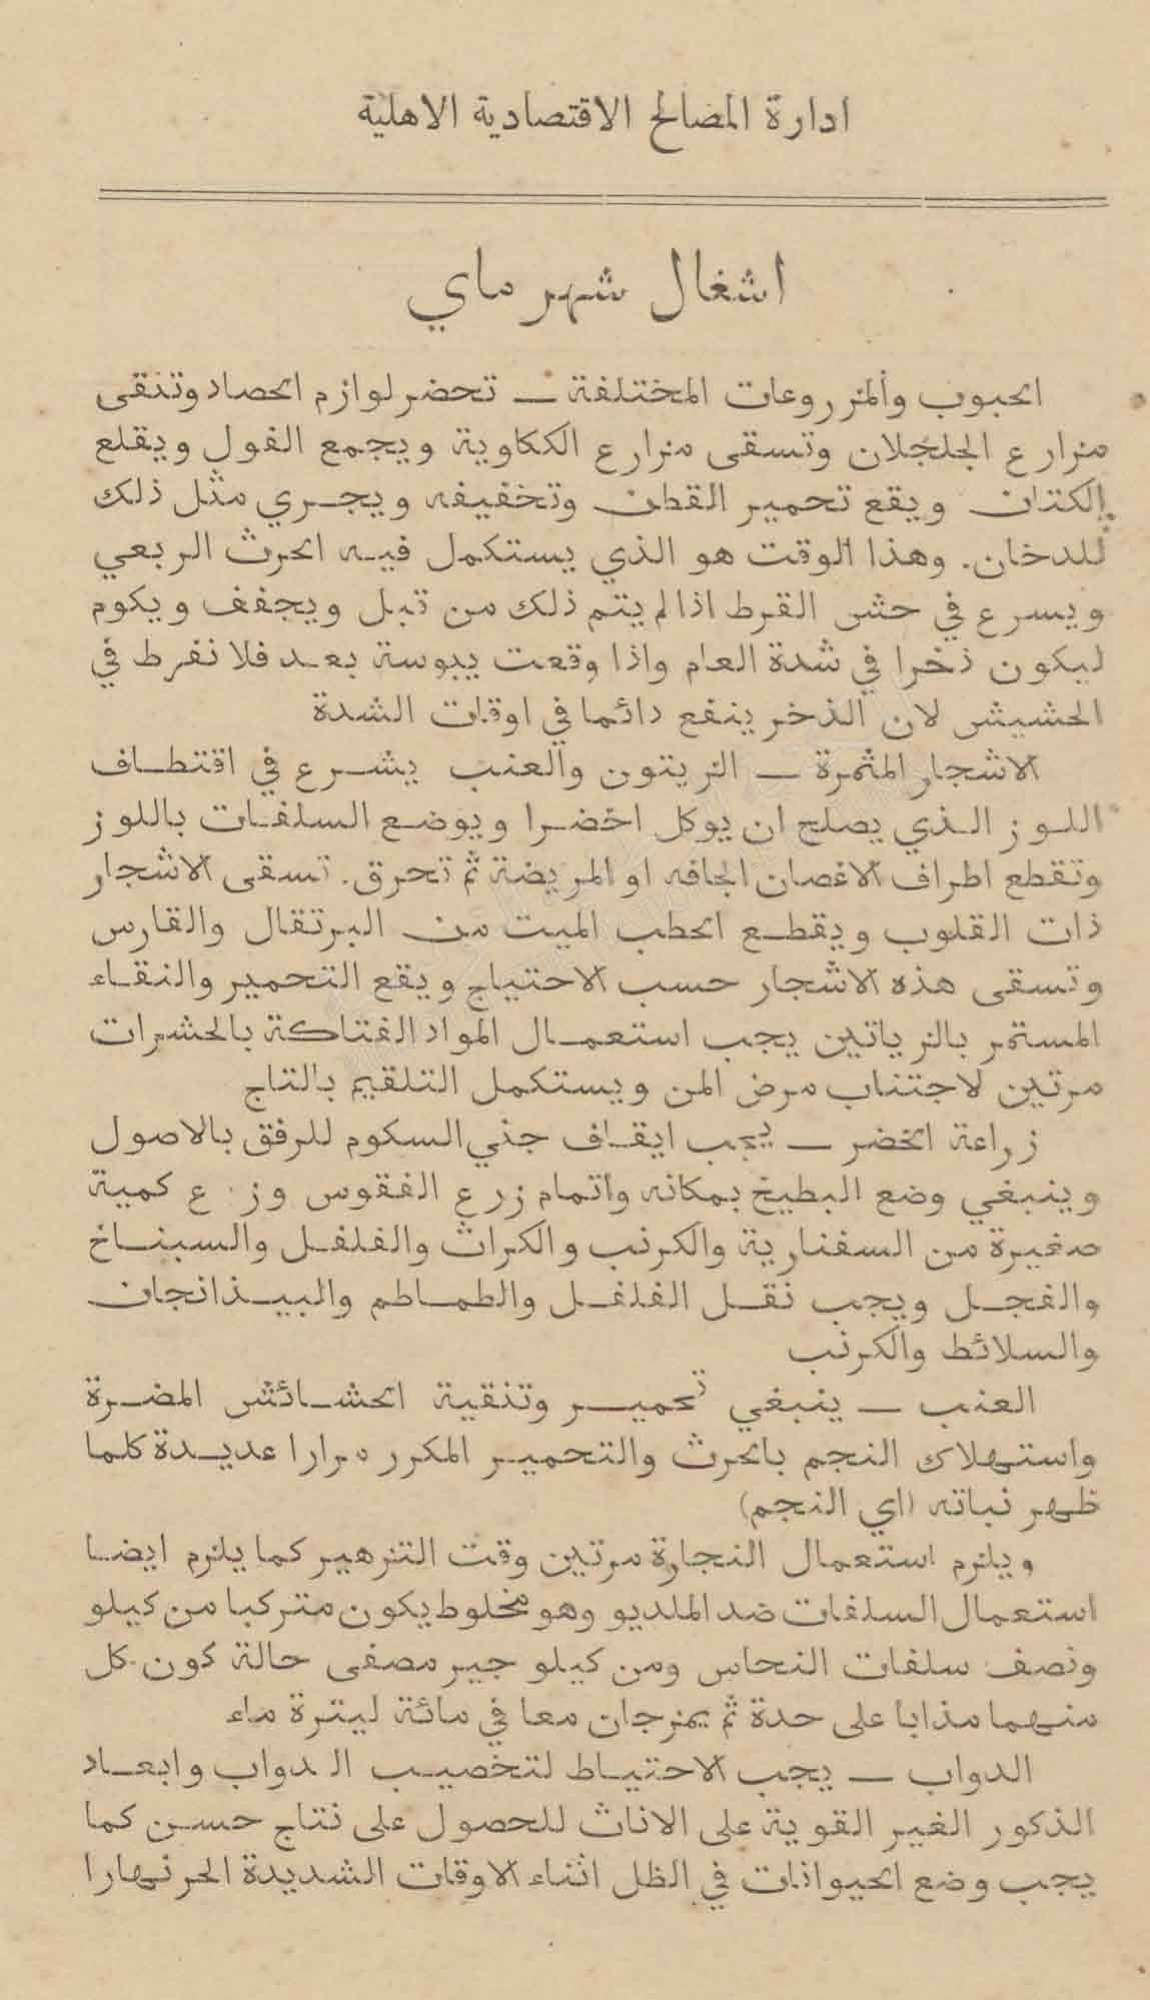 ادارة المصالح الاقتصادية الاهلية
اشغال شهر ماي
الحبوب والمزروعات المختلفة — تحضر لوازم الحصاد وتنقى
مزارع الجلجلان وتسقى مزارع الككاوية ويجمع الفول ويقلع
الكتان ويقع تحمير القطن وتخفيفه ويجري مثل ذلك
للدخان. وهذا الوقت هو الذي يستكمل فيه الحرث الربعي
ويسرع في حش القرط اذا لم يتم ذلك من قبل ويجفف ويكوم
ليكون ذخرا في شدة العام واذا وقعت يبوسة بعد فلا نفرط في
الحشيش لان الذخر ينفع دائما في اوقات الشدة
الاشجار المثمرة — الزيتون والعنب يشرع في اقتطاف
اللوز الذي يصلح ان يوكل اخضرا ويوضع السلفات باللوز
وتقطع اطراف الاغصان الجافه او المريضة ثم تحرق. تسقى الاشجار
ذات القلوب ويقطع الحطب الميت من البرتقال والقارس
وتسقى هذه الاشجار حسب الاحتياج ويقع التحمير والنقاء
المستمر بالزياتين يجب استعمال المواد الفتاكة بالحشرات
مرتين لاجتناب مرض المن ويستكمل التلقيم بالتاج
زراعة الخضر — يجب ايقاف جني السكوم للرفق بالاصول
وينبغي وضع البطيخ بمكانه واتمام زرع الفقوس وزرع كمية
صغيرة من السفنارية والكرنب والكراث والفلفل والسبناخ
والفجل ويجب نقل الفلفل والطماطم والبيذانجان
والسلائط والكرنب
العنب — ينبغي تحمير وتنقية الحشائش المضرة
واستهلاك النجم بالحرث والتحمير المكرر مرارا عديدة كلما
ظهر نباته (اي النجم)
ويلزم استعمال النجارة مرتين وقت التزهير كما يلزم ايضا
استعمال السلفات ضد الملديو وهو مخلوط يكون متركبا من كيلو
ونصف سلفات النحاس ومن كيلو جير مصفى حالة كون كل
منهما مذابا على حدة ثم يمزجان معا في مائة ليترة ماء
الدواب — يجب الاحتياط لتخصيب الدواب وابعاد
الذكور الغير القوية على الاناث للحصول على نتاج حسن كما
يجب وضع الحيوانات في الظل اثناء الاوقات الشديدة الحر نهارا